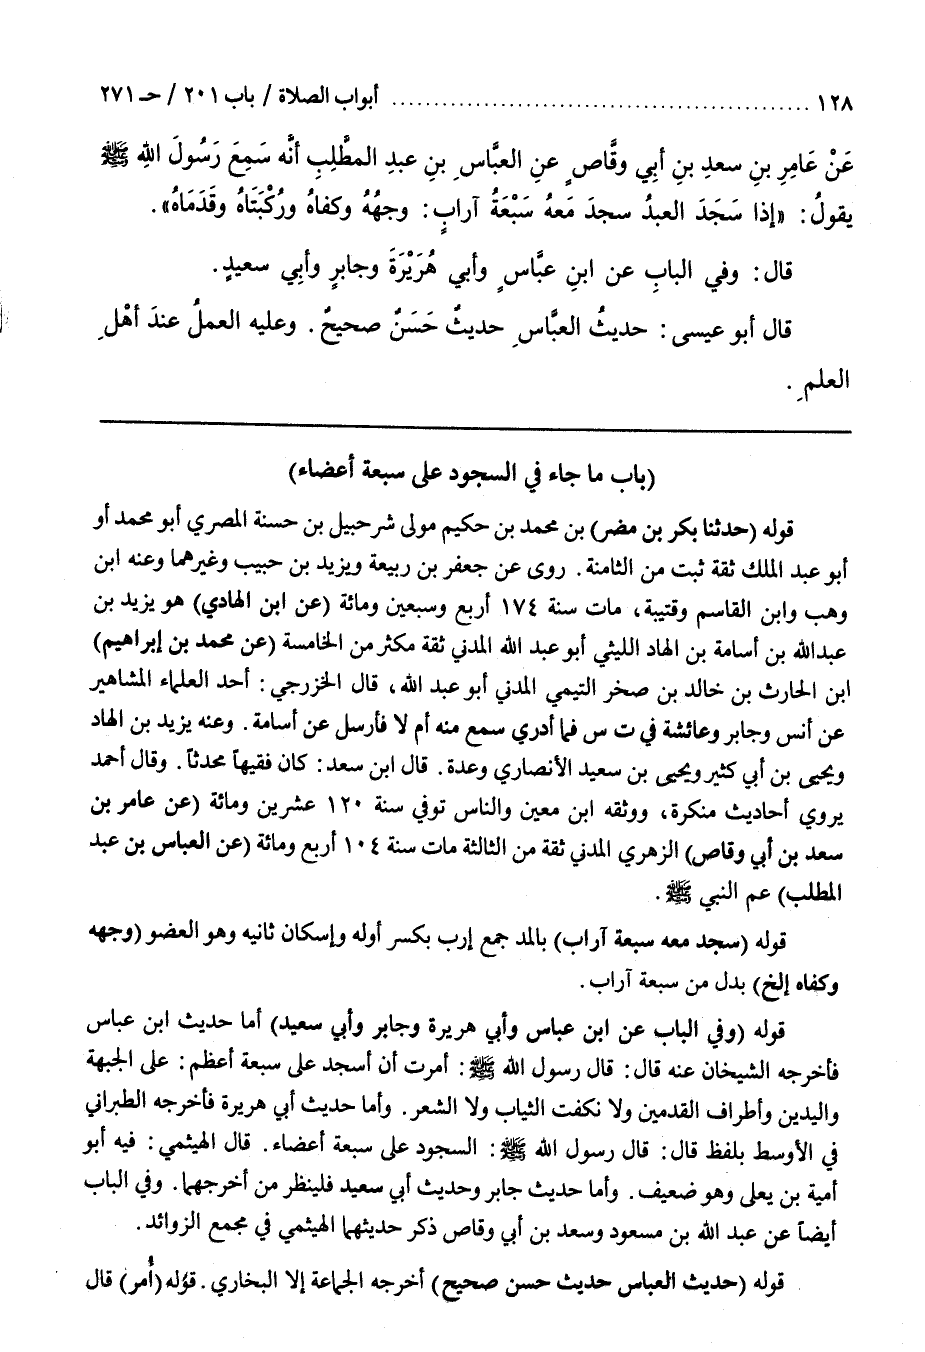 ١٢٨ ........................................ أبواب الصلاة / باب ٢٠١ / حـ ٢٧١
عَنْ عَامِرِ بنِ سعدِ بنِ أبي وقَّاصٍ عنِ العبَّاسِ بنِ عبدِ المطَّلِبِ أنَّه سَمِعَ رَسُولَ اللهِ ﷺ
يقولُ: «إذا سَجَدَ العبدُ سجدَ مَعه سَبْعَةُ آرابٍ: وجهُهُ وكفاهُ ورُكْبَتَاهُ وقَدَمَاهُ».
قال: وفي البابِ عن ابنِ عبَّاسٍ وأبي هُرَيْرَةَ وجابرٍ وأبي سعيدٍ.
قال أبو عيسى: حديثُ العبَّاسِ حديثٌ حَسَنٌ صحيحٌ. وعليه العملُ عندَ أهْلِ
العلمِ.
(باب ما جاء في السجود على سبعة أعضاء)
قوله (حدثنا بكر بن مضر) بن محمد بن حكيم مولى شرحبيل بن حسنة المصري أبو محمد أو
أبو عبد الملك ثقة ثبت من الثامنة. روى عن جعفر بن ربيعة ويزيد بن حبيب وغيرهما وعنه ابن
وهب وابن القاسم وقتيبة، مات سنة ١٧٤ أربع وسبعين ومائة (عن ابن الهادي) هو يزيد بن
عبدالله بن أسامة بن الهاد الليثي أبو عبد الله المدني ثقة مكثر من الخامسة (عن محمد بن إبراهيم)
ابن الحارث بن خالد بن صخر التيمي المدني أبو عبد الله، قال الخزرجي: أحد العلماء المشاهير
عن أنس وجابر وعائشة في ت س فما أدري سمع منه أم لا فأرسل عن أسامة. وعنه يزيد بن الهاد
ويحيى بن أبي كثير ويحيى بن سعيد الأنصاري وعدة. قال ابن سعد: كان فقيهاً محدثاً. وقال أحمد
يروي أحاديث منكرة، ووثقه ابن معين والناس توفي سنة ١٢٠ عشرين ومائة (عن عامر بن
سعد بن أبي وقاص) الزهري المدني ثقة من الثالثة مات سنة ١٠٤ أربع ومائة (عن العباس بن عبد
المطلب) عم النبي ﷺ.
قوله (سجد معه سبعة آراب) بالمد جمع إرب بكسر أوله وإسكان ثانيه وهو العضو (وجهه
وكفاه إلخ) بدل من سبعة آراب.
قوله (وفي الباب عن ابن عباس وأبي هريرة وجابر وأبي سعيد) أما حديث ابن عباس
فأخرجه الشيخان عنه قال: قال رسول الله ﷺ: أمرت أن أسجد على سبعة أعظم: على الجبهة
واليدين وأطراف القدمين ولا نكفت الثياب ولا الشعر. وأما حديث أبي هريرة فأخرجه الطبراني
في الأوسط بلفظ قال: قال رسول الله ﷺ: السجود على سبعة أعضاء. قال الهيثمي: فيه أبو
أمية بن يعلى وهو ضعيف. وأما حديث جابر وحديث أبي سعيد فلينظر من أخرجهما. وفي الباب
أيضاً عن عبد الله بن مسعود وسعد بن أبي وقاص ذكر حديثهما الهيثمي في مجمع الزوائد.
قوله (حديث العباس حديث حسن صحيح) أخرجه الجماعة إلا البخاري. قوله (أُمر) قال